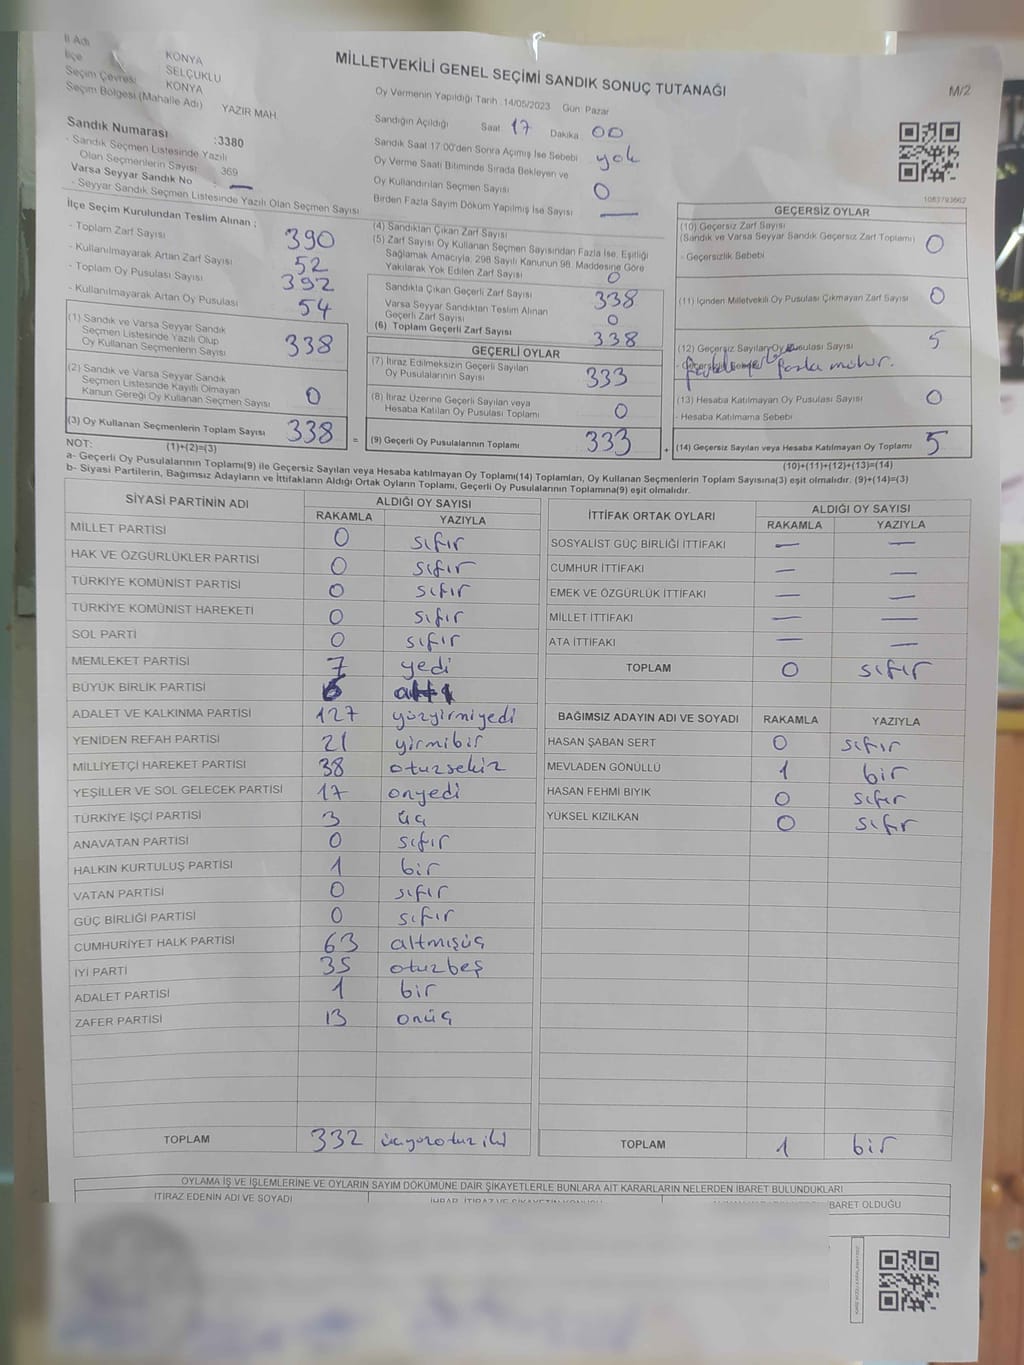 İl Adı KONYA
İlçe SELÇUKLU
Seçim Çevresi KONYA
Seçim Bölgesi (Mahalle Adı) YAZIR MAH.
Sandık Numarası :3380
- Sandık Seçmen Listesinde Yazılı
Olan Seçmenlerin Sayısı 369
Varsa Seyyar Sandık No —
- Seyyar Sandık Seçmen Listesinde Yazılı Olan Seçmen Sayısı
MİLLETVEKİLİ GENEL SEÇİMİ SANDIK SONUÇ TUTANAĞI
M/2
Oy Vermenin Yapıldığı Tarih :14/05/2023 Gün: Pazar
Sandığın Açıldığı Saat 17 Dakika 00
Sandık Saat 17:00'den Sonra Açımış İse Sebebi yok
Oy Verme Saati Bitiminde Sırada Bekleyen ve
Oy Kullandırılan Seçmen Sayısı 0
Birden Fazla Sayım Döküm Yapılmış İse Sayısı —
1083793662
İlçe Seçim Kurulundan Teslim Alınan :
- Toplam Zarf Sayısı 390
- Kullanılmayarak Artan Zarf Sayısı 52
- Toplam Oy Pusulası Sayısı 392
- Kullanılmayarak Artan Oy Pusulası 54
(1) Sandık ve Varsa Seyyar Sandık
Seçmen Listesinde Yazılı Olup
Oy Kullanan Seçmenlerin Sayısı 338
(2) Sandık ve Varsa Seyyar Sandık
Seçmen Listesinde Kayıtlı Olmayan
Kanun Gereği Oy Kullanan Seçmen Sayısı 0
(3) Oy Kullanan Seçmenlerin Toplam Sayısı 338 =
(1)+(2)=(3)
(4) Sandıktan Çıkan Zarf Sayısı
(5) Zarf Sayısı Oy Kullanan Seçmen Sayısından Fazla İse, Eşitliği
Sağlamak Amacıyla, 298 Sayılı Kanunun 98. Maddesine Göre
Yakılarak Yok Edilen Zarf Sayısı 0
Sandıkta Çıkan Geçerli Zarf Sayısı 338
Varsa Seyyar Sandıktan Teslim Alınan
Geçerli Zarf Sayısı 0
(6) Toplam Geçerli Zarf Sayısı 338
GEÇERLİ OYLAR
(7) İtiraz Edilmeksizin Geçerli Sayılan
Oy Pusulalarının Sayısı 333
(8) İtiraz Üzerine Geçerli Sayılan veya
Hesaba Katılan Oy Pusulası Toplamı 0
(9) Geçerli Oy Pusulalarının Toplamı 333 +
GEÇERSİZ OYLAR
(10) Geçersiz Zarf Sayısı
(Sandık ve Varsa Seyyar Sandık Geçersiz Zarf Toplamı) 0
- Geçersizlik Sebebi
(11) İçinden Milletvekili Oy Pusulası Çıkmayan Zarf Sayısı 0
(12) Geçersiz Sayılan Oy Pusulası Sayısı 5
- Geçersizlik Sebebi fazla mühür.
(13) Hesaba Katılmayan Oy Pusulası Sayısı 0
- Hesaba Katılmama Sebebi
(14) Geçersiz Sayılan veya Hesaba Katılmayan Oy Toplamı 5
(10)+(11)+(12)+(13)=(14)
NOT:
a- Geçerli Oy Pusulalarının Toplamı(9) ile Geçersiz Sayılan veya Hesaba katılmayan Oy Toplamı(14) Toplamları, Oy Kullanan Seçmenlerin Toplam Sayısına(3) eşit olmalıdır. (9)+(14)=(3)
b- Siyasi Partilerin, Bağımsız Adayların ve İttifakların Aldığı Ortak Oyların Toplamı, Geçerli Oy Pusulalarının Toplamına(9) eşit olmalıdır.
SİYASİ PARTİNİN ADI ALDIĞI OY SAYISI
RAKAMLA YAZIYLA
MİLLET PARTİSİ 0 sıfır
HAK VE ÖZGÜRLÜKLER PARTİSİ 0 sıfır
TÜRKİYE KOMÜNİST PARTİSİ 0 sıfır
TÜRKİYE KOMÜNİST HAREKETİ 0 sıfır
SOL PARTİ 0 sıfır
MEMLEKET PARTİSİ 7 yedi
BÜYÜK BİRLİK PARTİSİ 6 altı
ADALET VE KALKINMA PARTİSİ 127 yüzyirmiyedi
YENİDEN REFAH PARTİSİ 21 yirmibir
MİLLİYETÇİ HAREKET PARTİSİ 38 otuzsekiz
YEŞİLLER VE SOL GELECEK PARTİSİ 17 onyedi
TÜRKİYE İŞÇİ PARTİSİ 3 üç
ANAVATAN PARTİSİ 0 sıfır
HALKIN KURTULUŞ PARTİSİ 1 bir
VATAN PARTİSİ 0 sıfır
GÜÇ BİRLİĞİ PARTİSİ 0 sıfır
CUMHURİYET HALK PARTİSİ 63 altmışüç
İYİ PARTİ 35 otuzbeş
ADALET PARTİSİ 1 bir
ZAFER PARTİSİ 13 onüç
TOPLAM 332 üçyüzotuziki
İTTİFAK ORTAK OYLARI ALDIĞI OY SAYISI
RAKAMLA YAZIYLA
SOSYALİST GÜÇ BİRLİĞİ İTTİFAKI — —
CUMHUR İTTİFAKI — —
EMEK VE ÖZGÜRLÜK İTTİFAKI — —
MİLLET İTTİFAKI — —
ATA İTTİFAKI — —
TOPLAM 0 sıfır
BAĞIMSIZ ADAYIN ADI VE SOYADI RAKAMLA YAZIYLA
HASAN ŞABAN SERT 0 sıfır
MEVLADEN GÖNÜLLÜ 1 bir
HASAN FEHMİ BIYIK 0 sıfır
YÜKSEL KIZILKAN 0 sıfır
TOPLAM 1 bir
OYLAMA İŞ VE İŞLEMLERİNE VE OYLARIN SAYIM DÖKÜMÜNE DAİR ŞİKAYETLERLE BUNLARA AİT KARARLARIN NELERDEN İBARET BULUNDUKLARI
İTİRAZ EDENİN ADI VE SOYADI
İBARET OLDUĞU